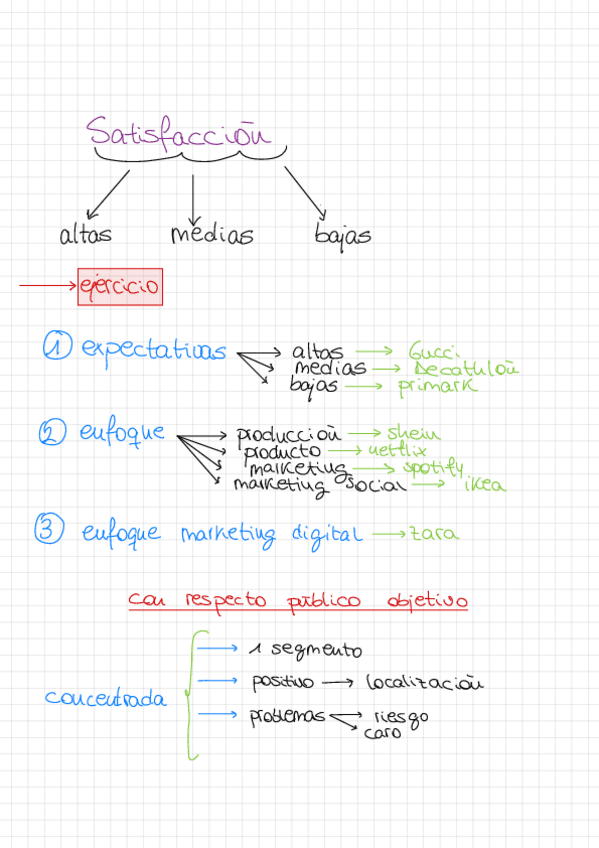 Satisfacción
altas medias bajas
→ ejercicio
① expectativas → altas → Gucci
→ medias → Decathlon
→ bajas → primark
② enfoque → producción → shein
→ producto → netflix
→ marketing → spotify
→ marketing social → ikea
③ enfoque marketing digital → zara
con respecto público objetivo
→ 1 segmento
concentrada → positivo → localización
→ problemas → riesgo
→ caro